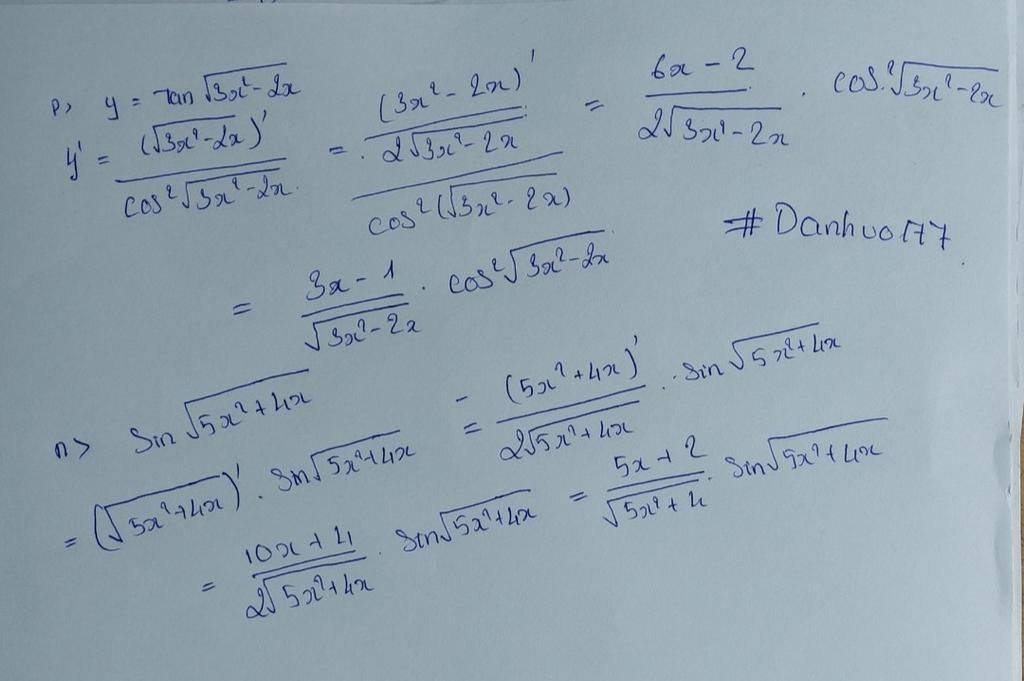 p> y = tan √(3x²-2x)
y' = (√(3x²-2x))' / cos²√(3x²-2x) = ((3x²-2x)' / 2√(3x²-2x)) / cos²(√(3x²-2x)) = (6x-2) / 2√(3x²-2x) . cos²√(3x²-2x)
# Danhvo177
= (3x-1) / √(3x²-2x) . cos²√(3x²-2x)
n> Sin √(5x²+4x)
= (√(5x²+4x))' . Sin√(5x²+4x) = (5x²+4x)' / 2√(5x²+4x) . sin √(5x²+4x)
= (10x+4) / 2√(5x²+4x) . Sin√(5x²+4x) = (5x+2) / √(5x²+4) . Sin√(5x²+4x)